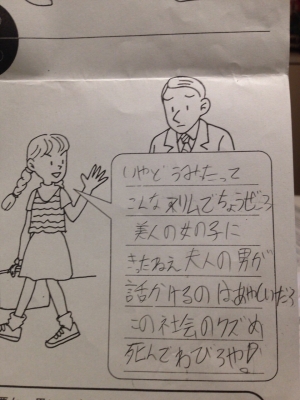 いやどうみたって
こんなスリムでちょうぜつ
美人の女の子に
きったねえ大人の男が
話かけるのはあやしいだろ
この社会のクズめ
死んでわびろや!